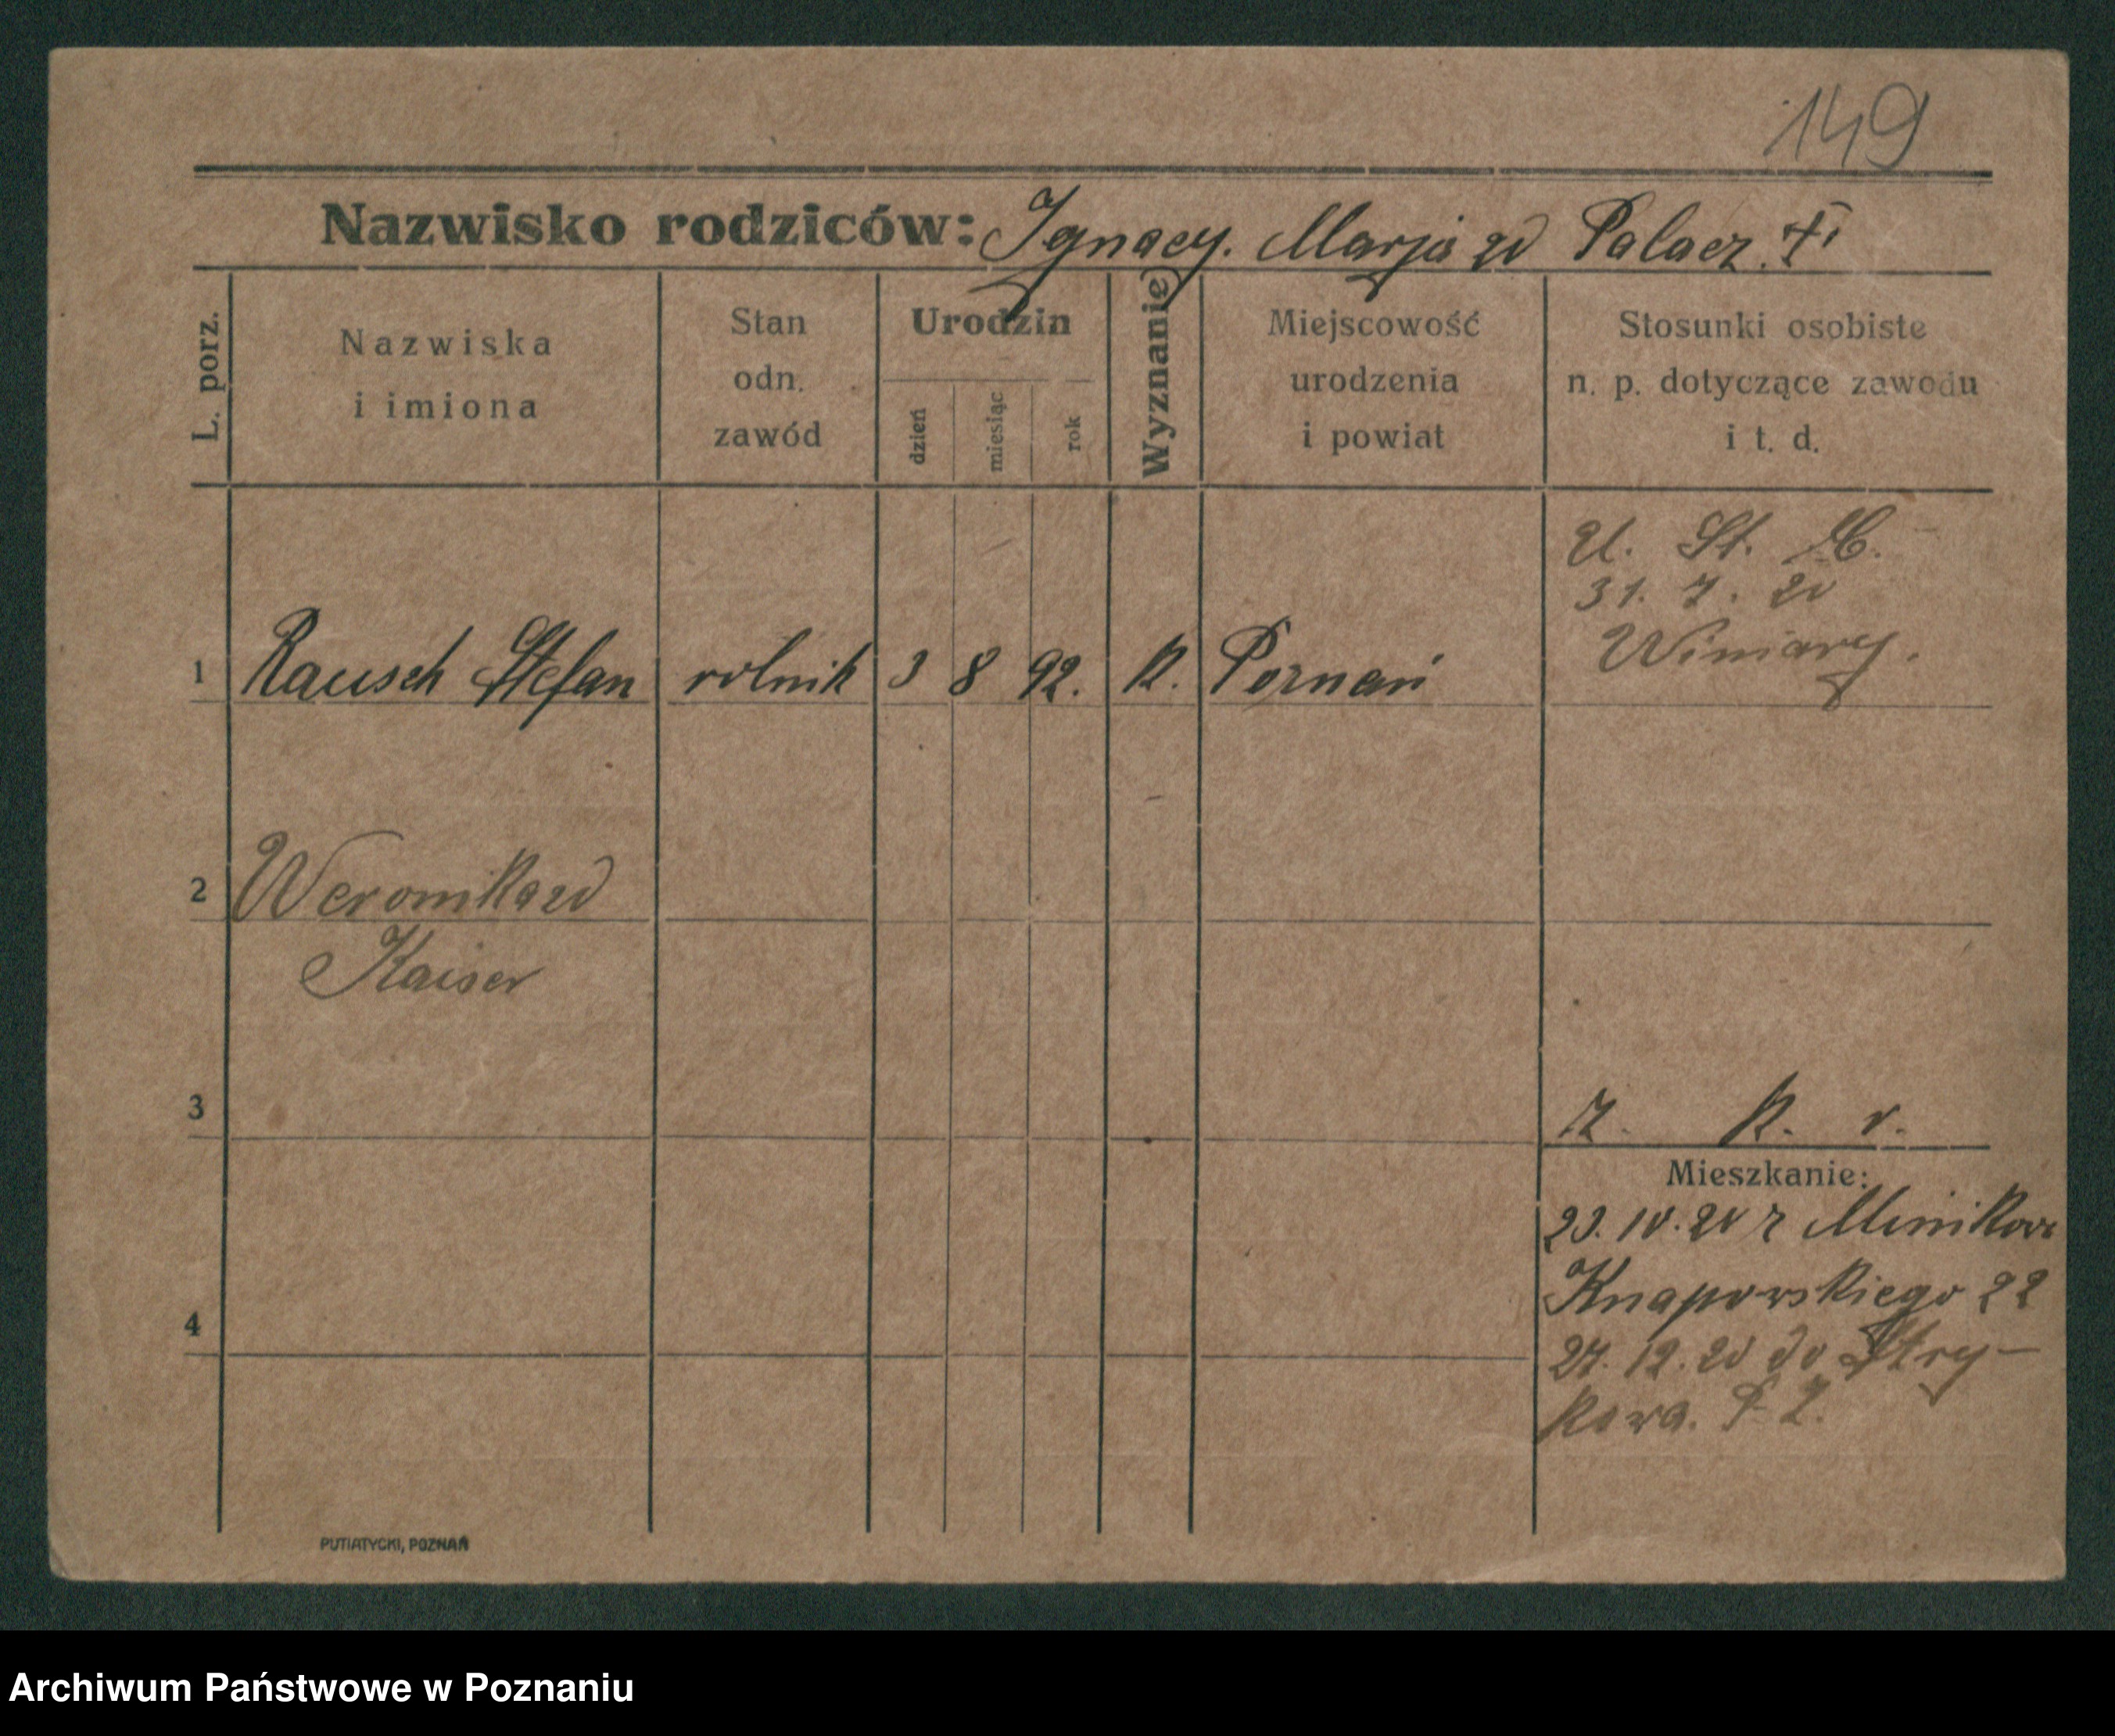 149
Nazwisko rodziców: Ignacy. Marja zd Palacz.
L. porz.
Nazwiska
i imiona
Stan
odn.
zawód
Urodzin
dzień
miesiąc
rok
Wyznanie
Miejscowość
urodzenia
i powiat
Stosunki osobiste
n. p. dotyczące zawodu
i t. d.
U. St. C.
31. 7. 20
Winiary.
1 Rausch Stefan rolnik 3 8 92. K. Poznań
2 Weronika zd
Kaiser
3
K. r.
Mieszkanie:
23. 10. 20 z Minikowa
Knapowskiego 22
4
27. 12. 20 do Stry-
kowa. P. Z.
PUTIATYCKI, POZNAŃ
Archiwum Państwowe w Poznaniu